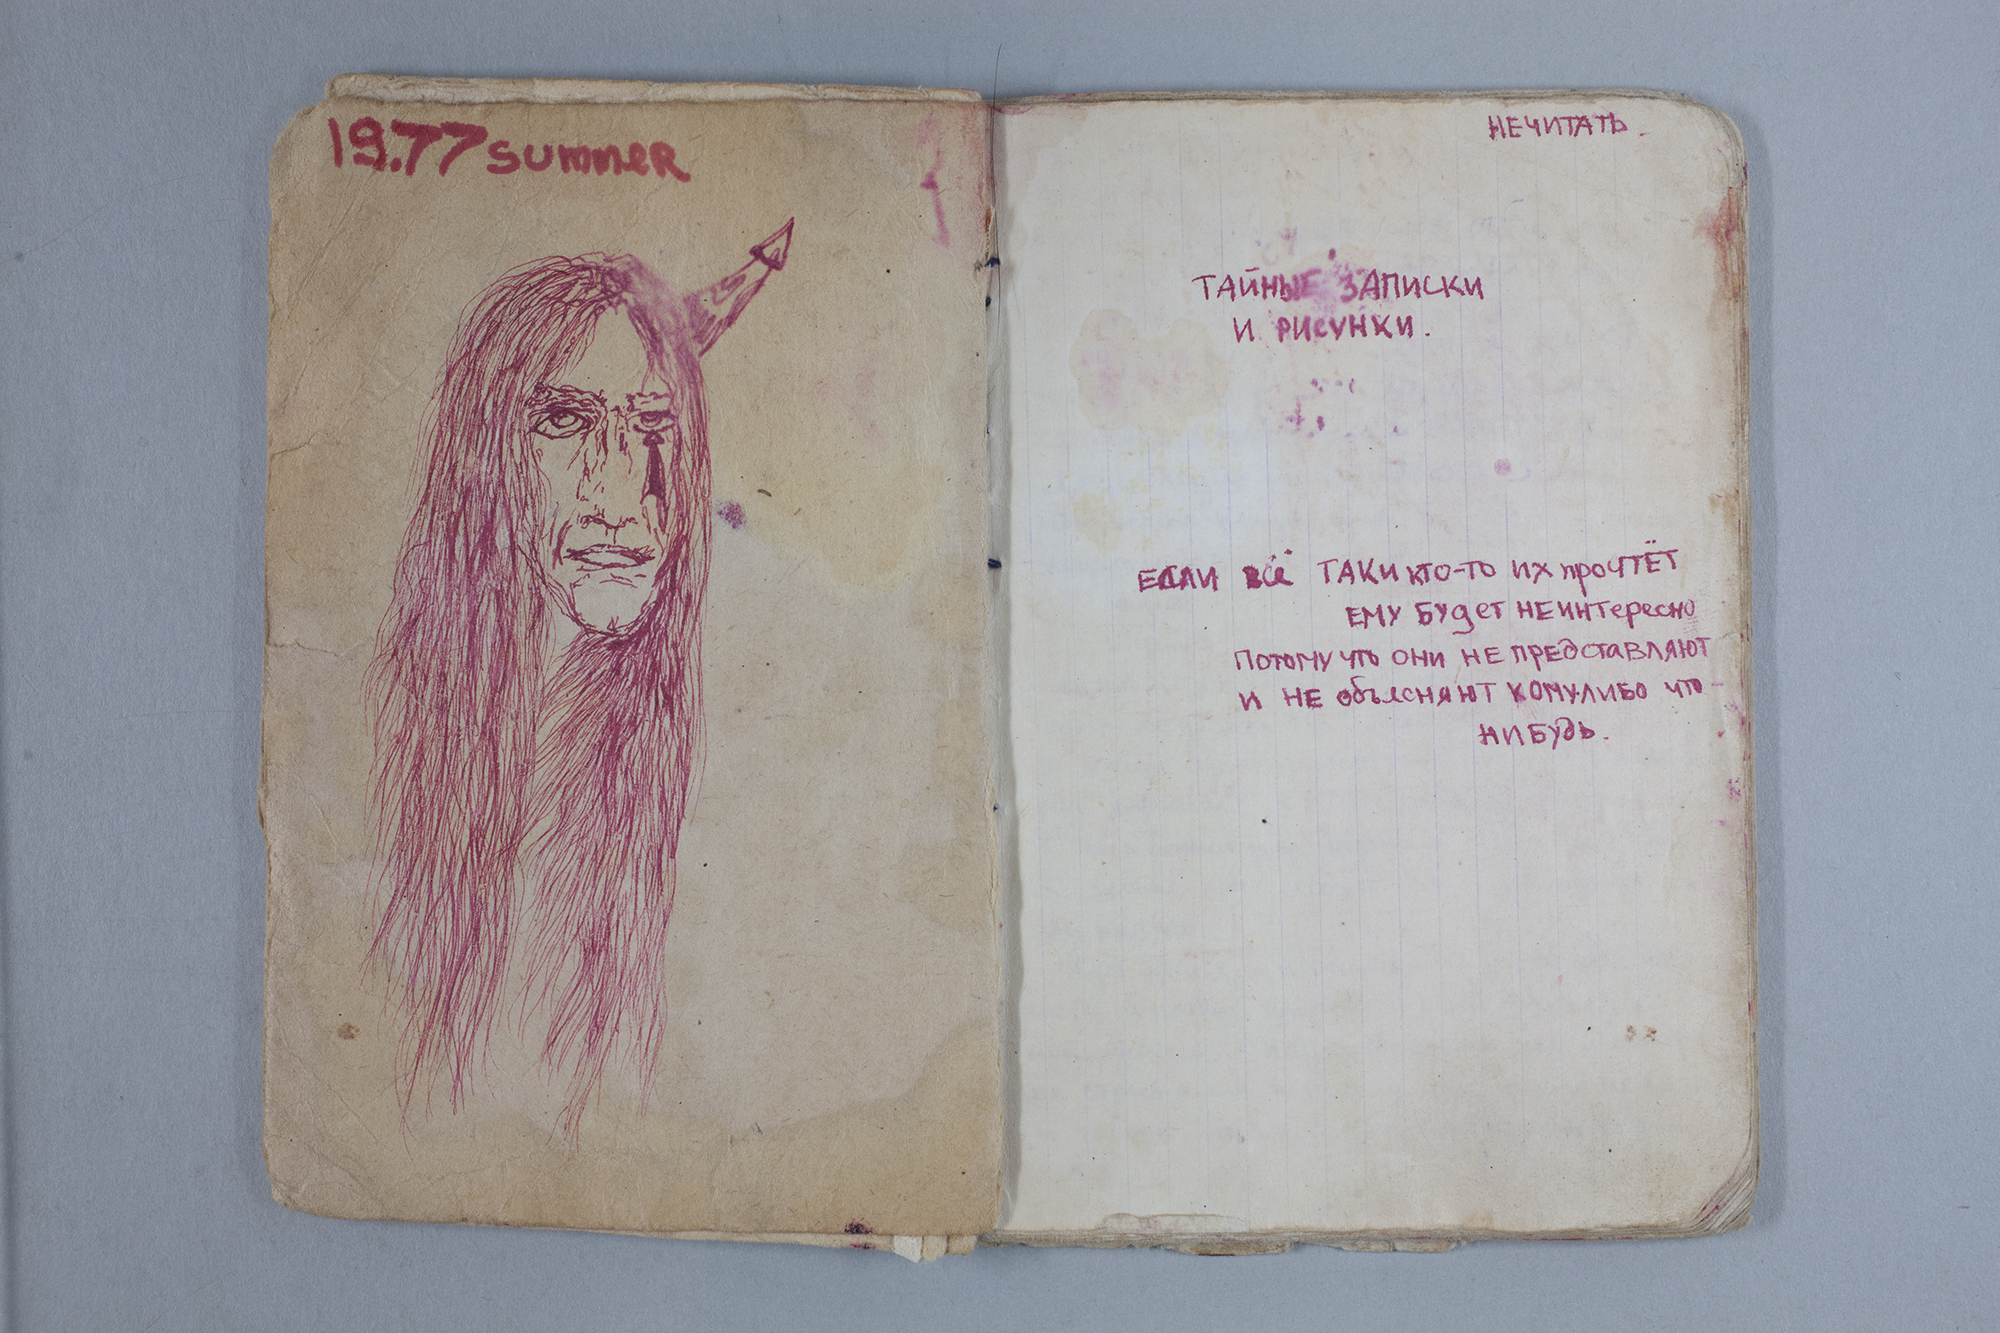 19.77 summer
НЕЧИТАТЬ.
ТАЙНЫЕ ЗАПИСКИ
И РИСУНКИ.
ЕСЛИ ВСЁ ТАКИ КТО-ТО ИХ ПРОЧТЁТ
ЕМУ БУДЕТ НЕИНТЕРЕСНО
ПОТОМУ ЧТО ОНИ НЕ ПРЕДСТАВЛЯЮТ
И НЕ ОБЪЯСНЯЮТ КОМУЛИБО ЧТО-
НИБУДЬ.